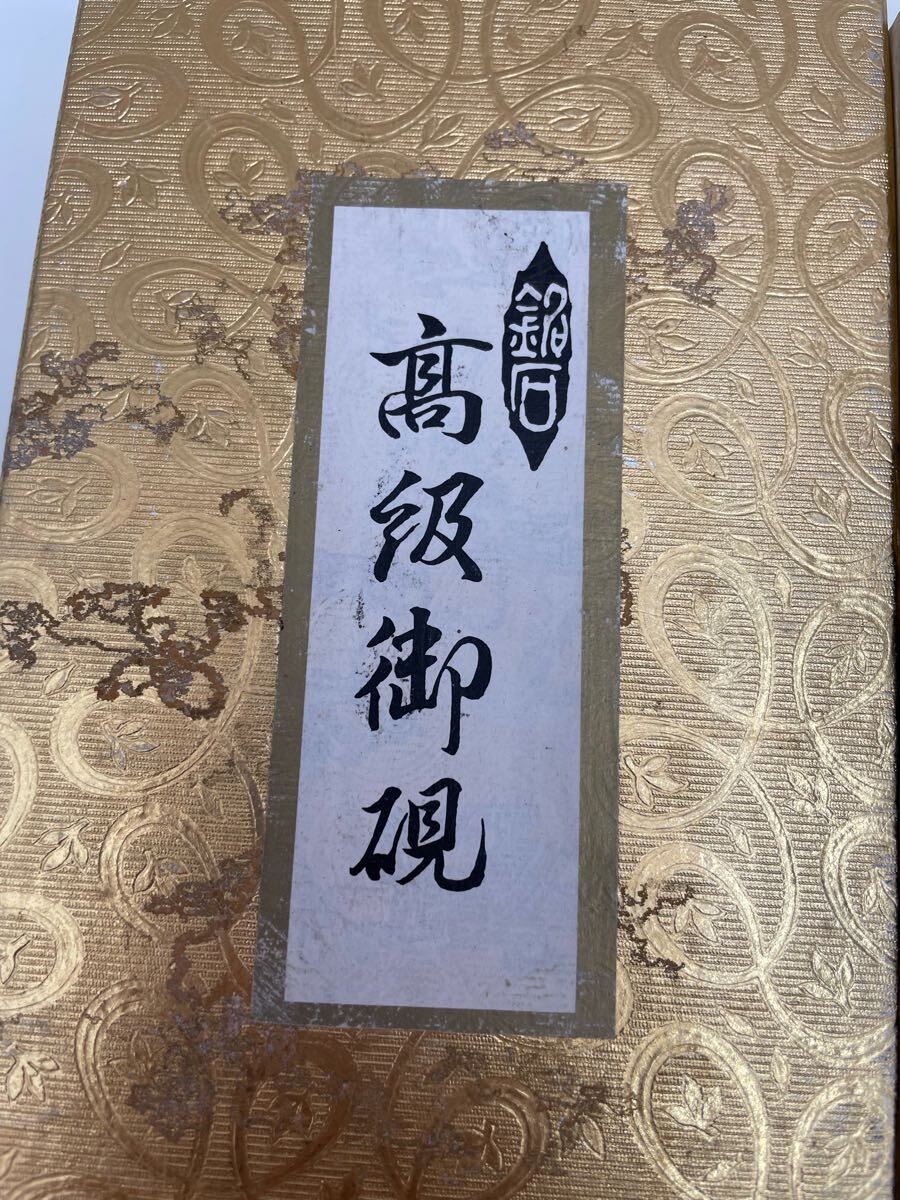 銘石
髙級御硯